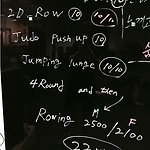 2D. Row (10) (10/10)
Judo push up (10)
Jumping lunge (10/10)
4 Round and then
M F
Rowing 2500/2100